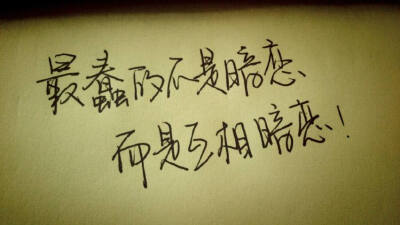 最蠢的不是暗恋、
而是互相暗恋！